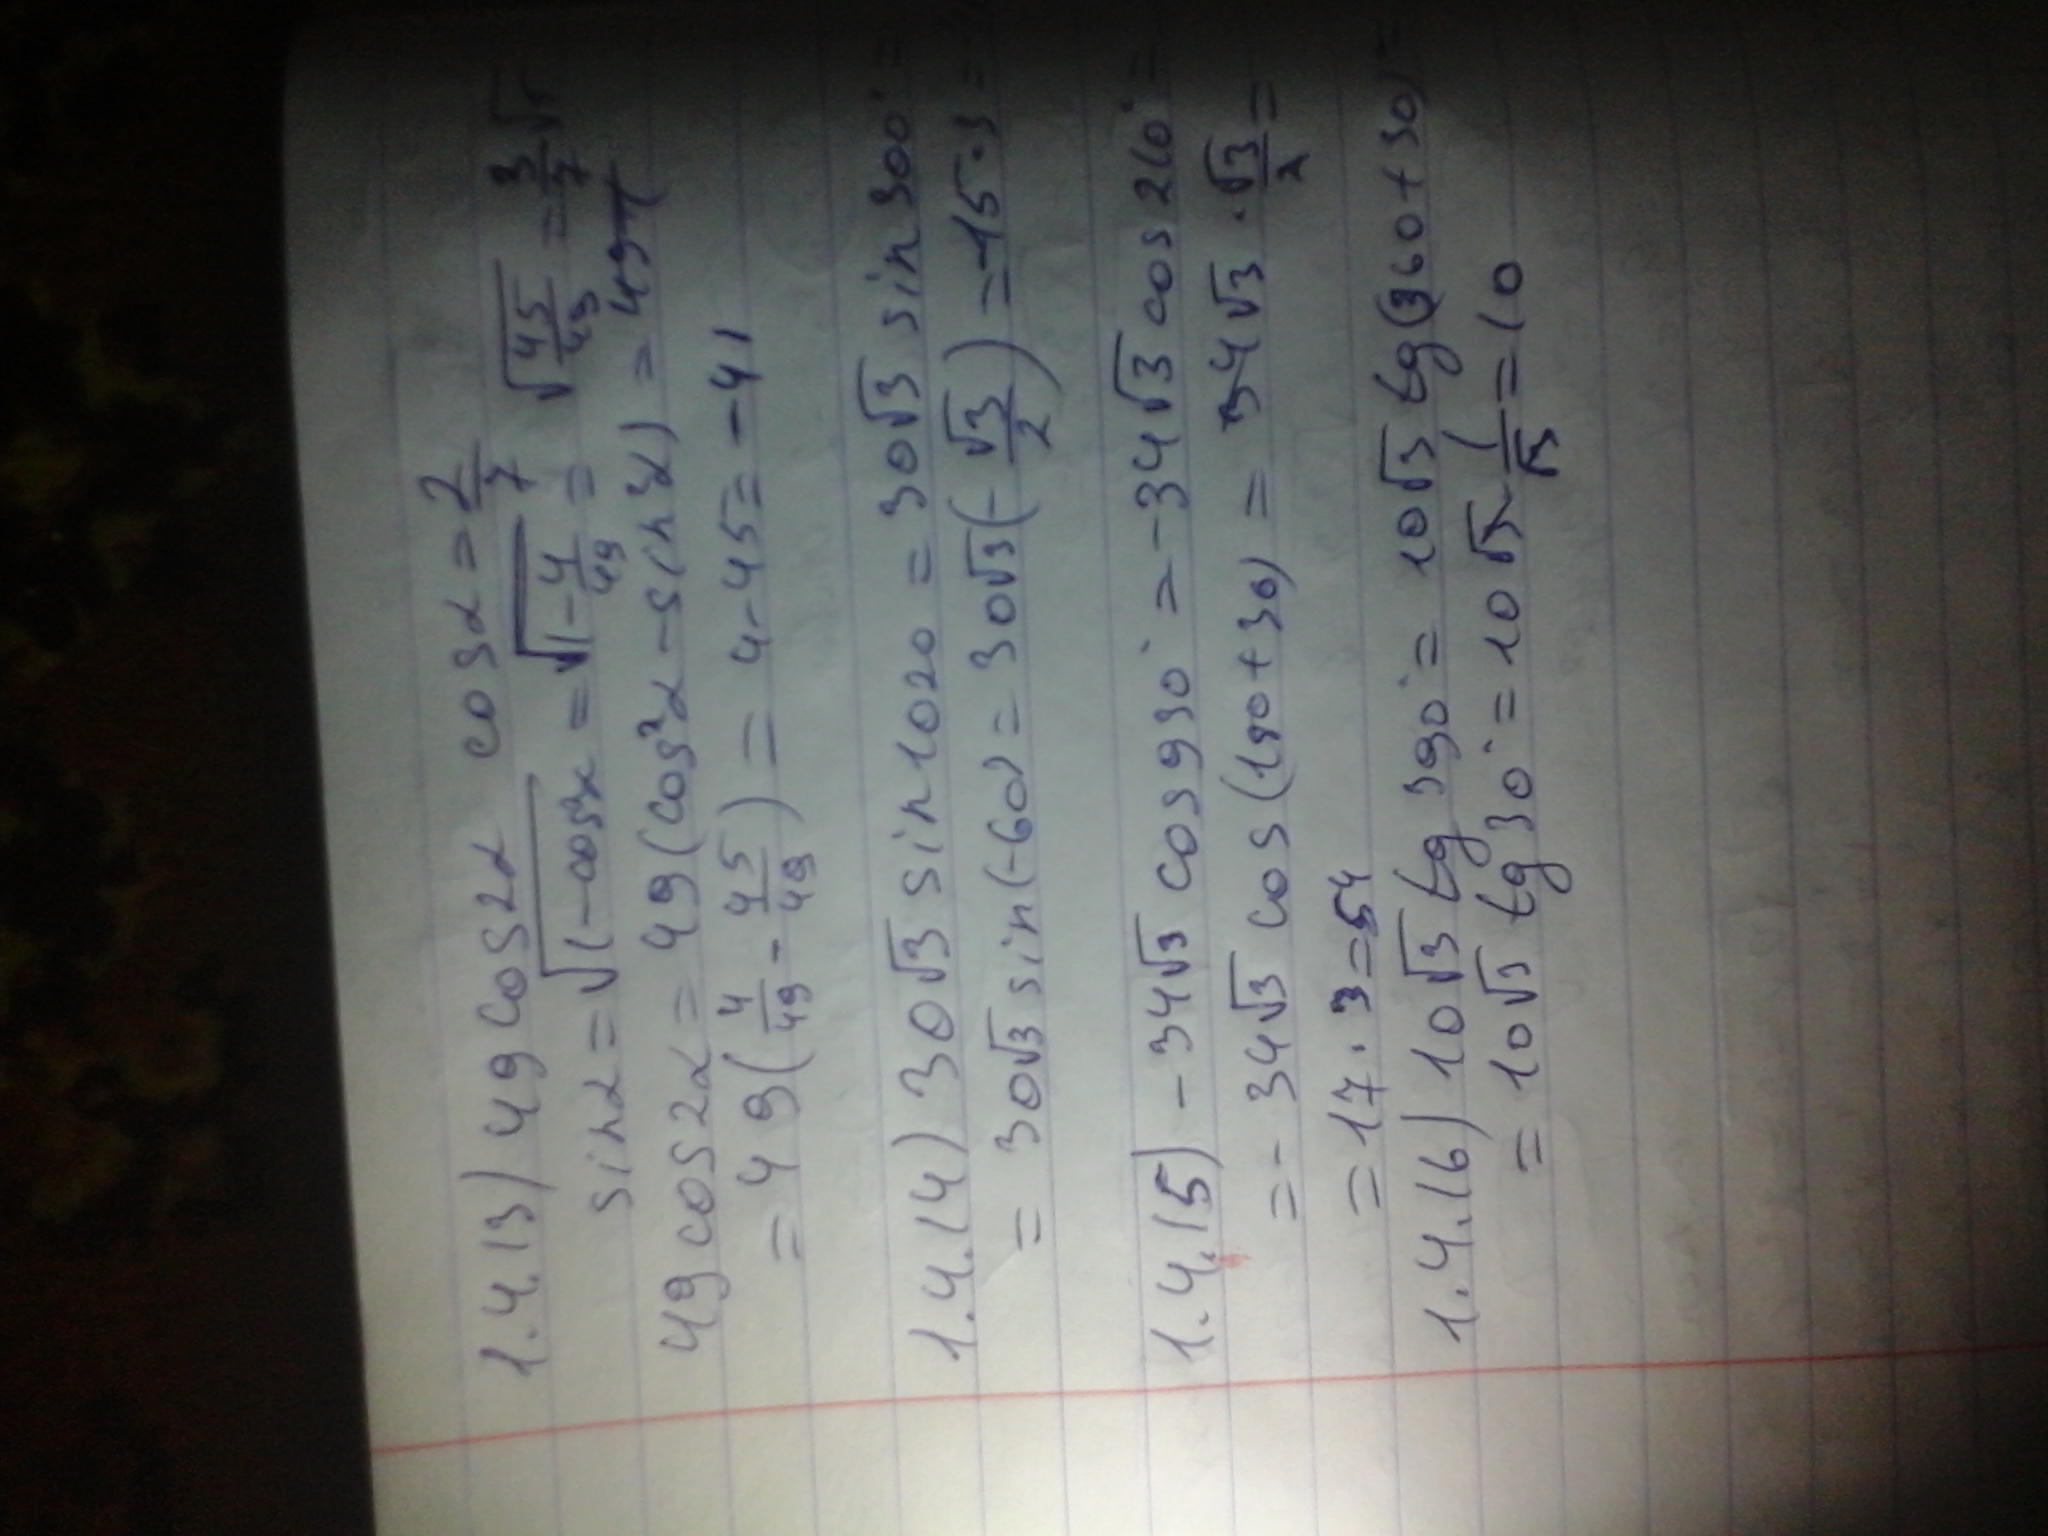 1.4.13) 49cos2α cosα = 2/7
sinα = √(1-cos²α) = √(1-4/49) = √(45/49) = 3/7√5
49cos2α = 49(cos²α - sin²α) = 49
= 49(4/49 - 45/49) = 4-45 = -41
1.4.14) 30√3 sin1020 = 30√3 sin300° =
= 30√3 sin(-60) = 30√3(-√3/2) = -15·3 =
1.4.15) -34√3 cos990° = -34√3 cos210° =
= -34√3 cos(180+30) = 34√3 · √3/2 =
= 17·3=54
1.4.16) 10√3 tg 390° = 10√3 tg(360+30)
= 10√3 tg30° = 10√3 · 1/√3 = 10